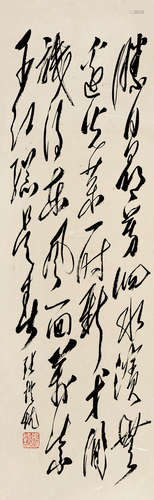 勝日尋芳泗水濱無
邊光景一時新等閒
識得東風面萬紫
千紅總是春 張愷帆